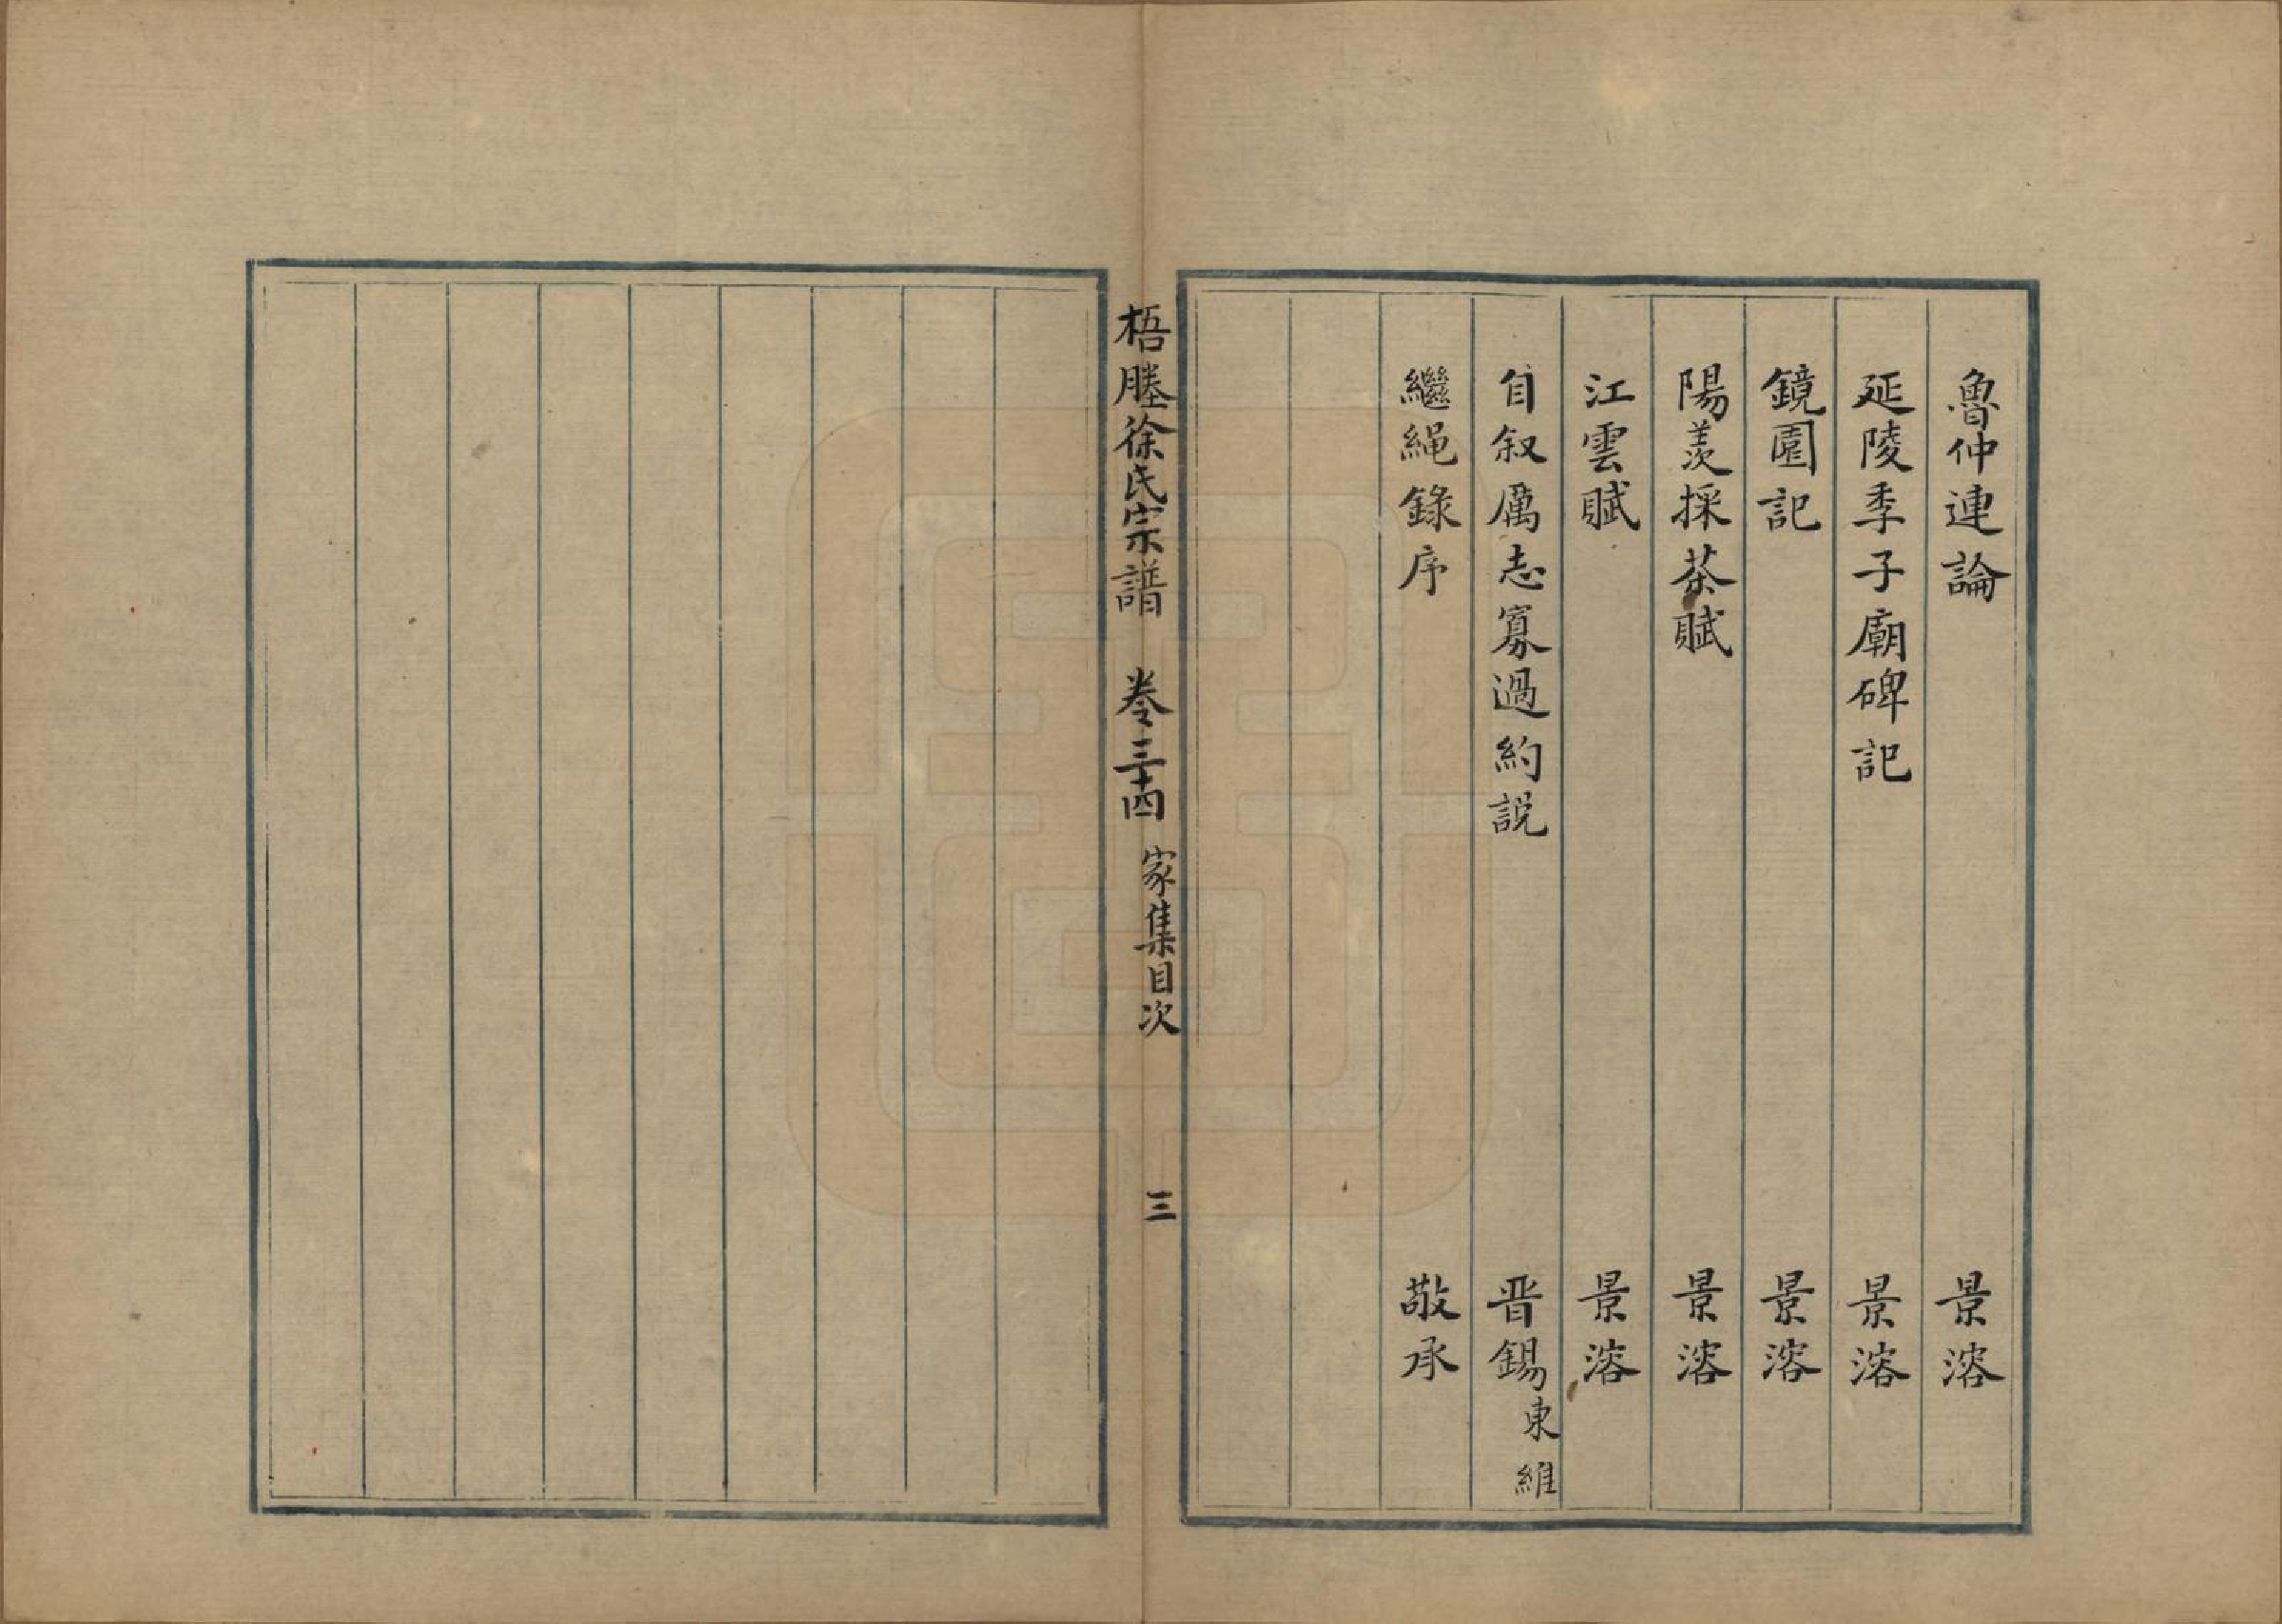 魯仲連論 景溶
延陵季子廟碑記 景溶
鏡園記 景溶
陽羨採茶賦 景溶
江雲賦 景溶
自叙厲志寡過約説 晋錫 東維
繼繩錄序 敬承
梧塍徐氏宗譜 卷三十四 家集目次 三